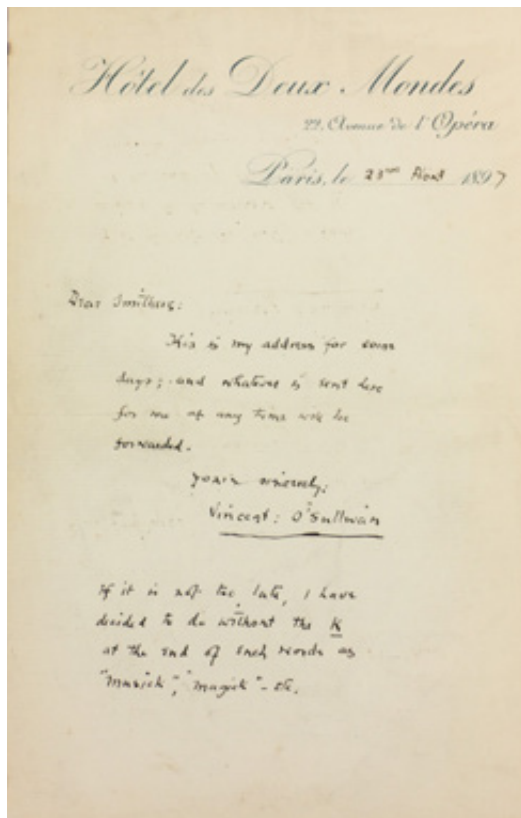 Hôtel des Deux Mondes
22, Avenue de l'Opéra
Paris, le 23me Aout 1897
Dear Smithers:
This is my address for some
days; and whatever is sent here
for me at any time will be
forwarded.
yours sincerely:
Vincent: O'Sullivan
If it is not too late, I have
decided to do without the K
at the end of such words as
"musick", "magick" - etc.